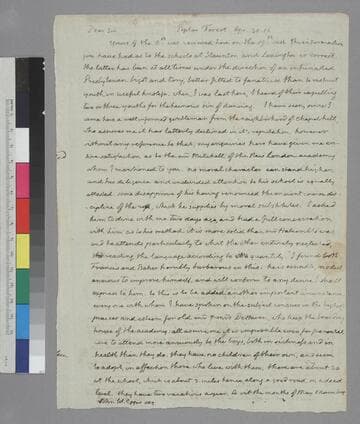 Dear Sir Poplar Forest Apr. 30. 16
Yours of the 2d was received here on the 19th inst. the information
you have had as to the schools at Staunton and Lexington is correct
the latter has been at all times under the direction of an intemperate
Presbyterian bigot and tory, better fitted to fanaticise than to instruct
youth in useful knolege. when I was last here, I heard of their expelling
two or three youths for the heinous sin of dancing. I have seen, since I
came here a well informed gentleman from the neighborhood of Chapel hill.
He assures me it has latterly declined in its reputation. however
without any reference to that, my enquiries here have given me entire
satisfaction as to the mr Mitchell of the New London academy
whom I mentioned to you. no moral character can stand higher,
and his diligence and undivided attention to his school is equally
attested. some disapprove of his having renounced the ancient
discipline of the rod, which he supplies by moral excitements. I asked
him to dine with me two days ago and had a full conversation
with him as to his method. it is more solid than
and he attends particularly to what the other entirely neglected,
the reading the language according to it's quantity. I found both
Francis and Baker horribly barbarous in this. he is
anxious to improve himself, and will conform to any desire I shall
express to him. to this is to be added another important
every one with whom I have spoken on the subject concurs in the highest
praises and esteem for old mr and mrs Dehaven, who keep the boarding
house of the academy. all assure me it is impossible even for parental
care to attend more anxiously to the boys, both in sickness and in
health than they do. they have no children of their own, and seem
to adopt in affection those who live with them. there are about 20
at the school, which is about 3. miles hence along a good road, on a dead
level. they have two vacations a year, to wit the months of May & November
John W. Eppes esq.